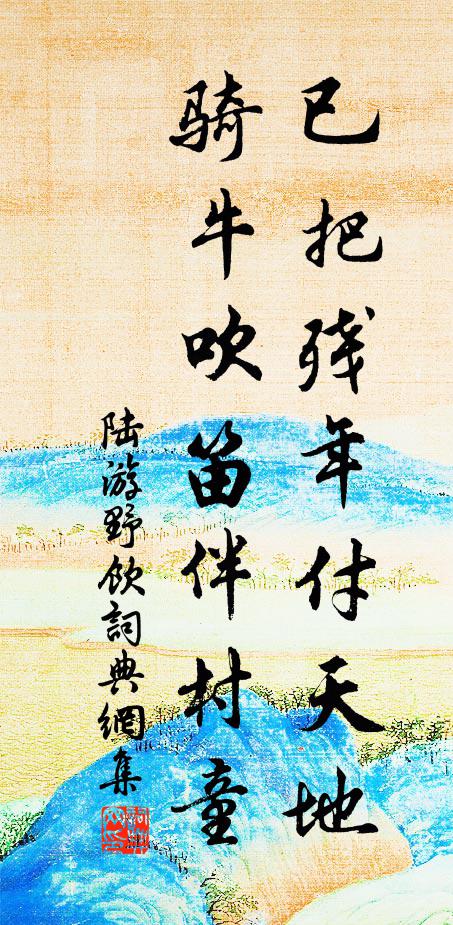 已把残年付天地
骑牛吹笛伴村童
陆游野饮詞典網集